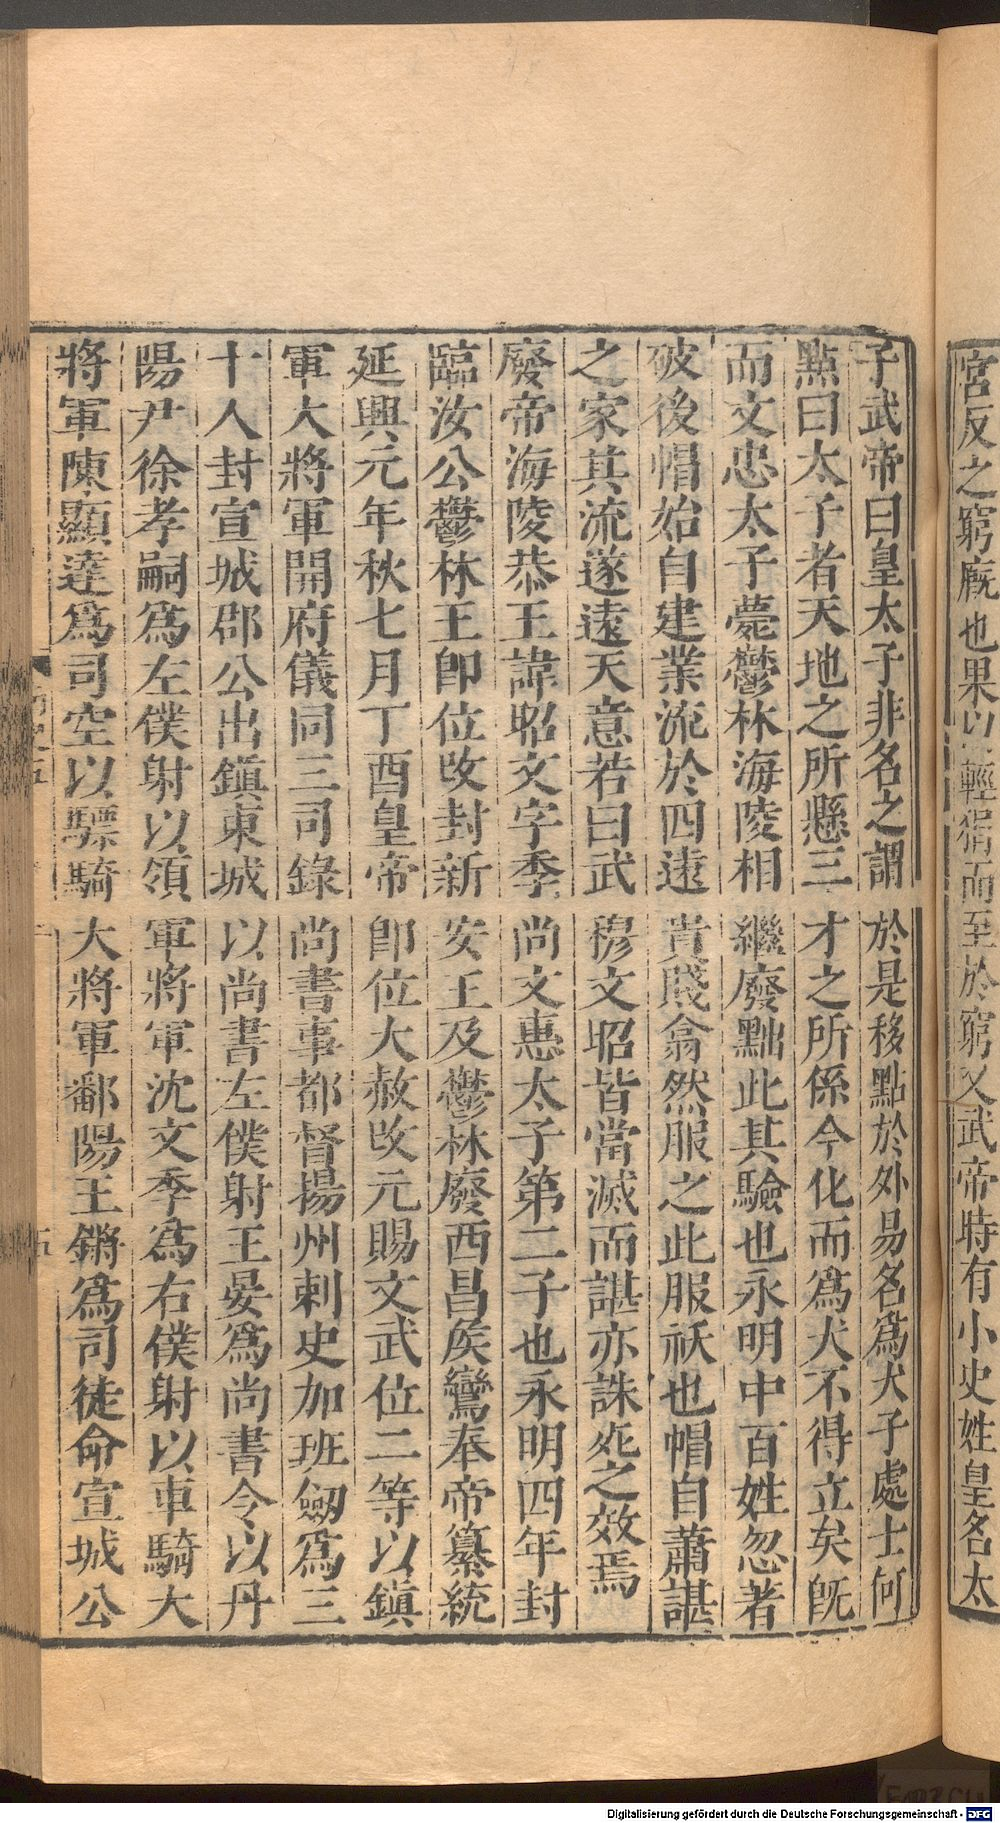 宮反之窮廐也果以輕狷而至於窮又武帝時有小史姓皇名太
子武帝曰皇太子非名之謂於是移點於外易名爲犬子處士何
點曰太子者天地之所懸三才之所係今化而爲犬不得立矣旣
而文忠太子薨鬱林海陵相繼廢黜此其驗也永明中百姓忽著
破後帽始自建業流於四遠貴賤翕然服之此服祅也帽自蕭諶
之家其流遂遠天意若曰武穆文昭皆當滅而諶亦誅死之效焉
廢帝海陵恭王諱昭文字季尚文惠太子第二子也永明四年封
臨汝公鬱林王卽位改封新安王及鬱林廢西昌侯鸞奉帝纂統
延興元年秋七月丁酉皇帝卽位大赦改元賜文武位二等以鎮
軍大將軍開府儀同三司錄尚書事都督揚州刺史加班劒爲三
十人封宣城郡公出鎮東城以尚書左僕射王晏爲尚書令以丹
陽尹徐孝嗣爲左僕射以領軍將軍沈文季爲右僕射以車騎大
將軍陳顯達爲司空以驃騎大將軍鄱陽王鏘爲司徒命宣城公
五
Digitalisierung gefördert durch die Deutsche Forschungsgemeinschaft - DFG